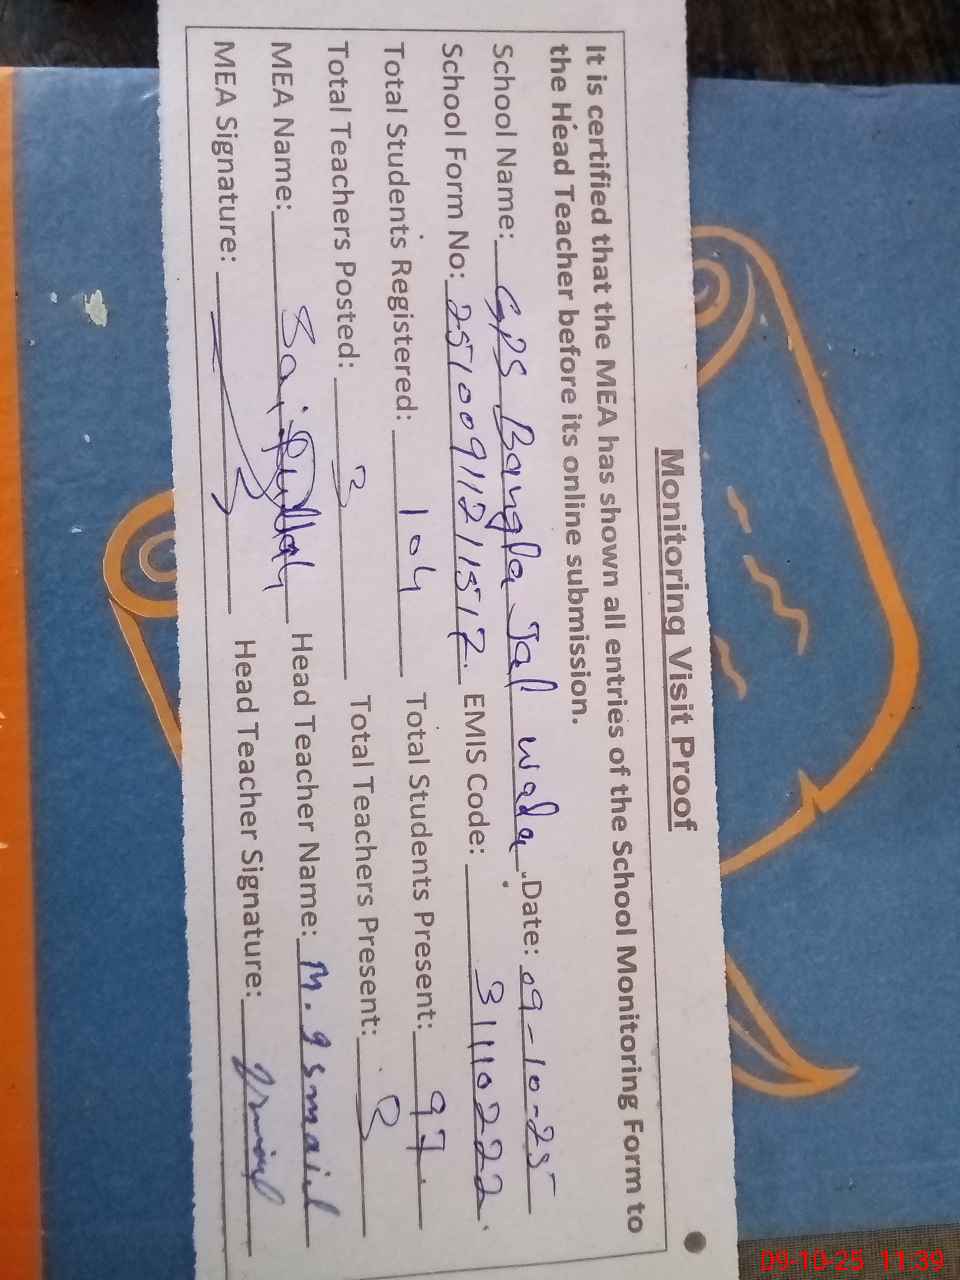 Monitoring Visit Proof
It is certified that the MEA has shown all entries of the School Monitoring Form to
the Head Teacher before its online submission.
School Name: GPS Bangla Jal wala Date: 09-10-25
School Form No: 25100911211517 EMIS Code: 31110222
Total Students Registered: 104 Total Students Present: 97
Total Teachers Posted: 3 Total Teachers Present: 3
MEA Name: Saifullah Head Teacher Name: M. Ismail
MEA Signature: Head Teacher Signature: Ismail
09-10-25 11:39